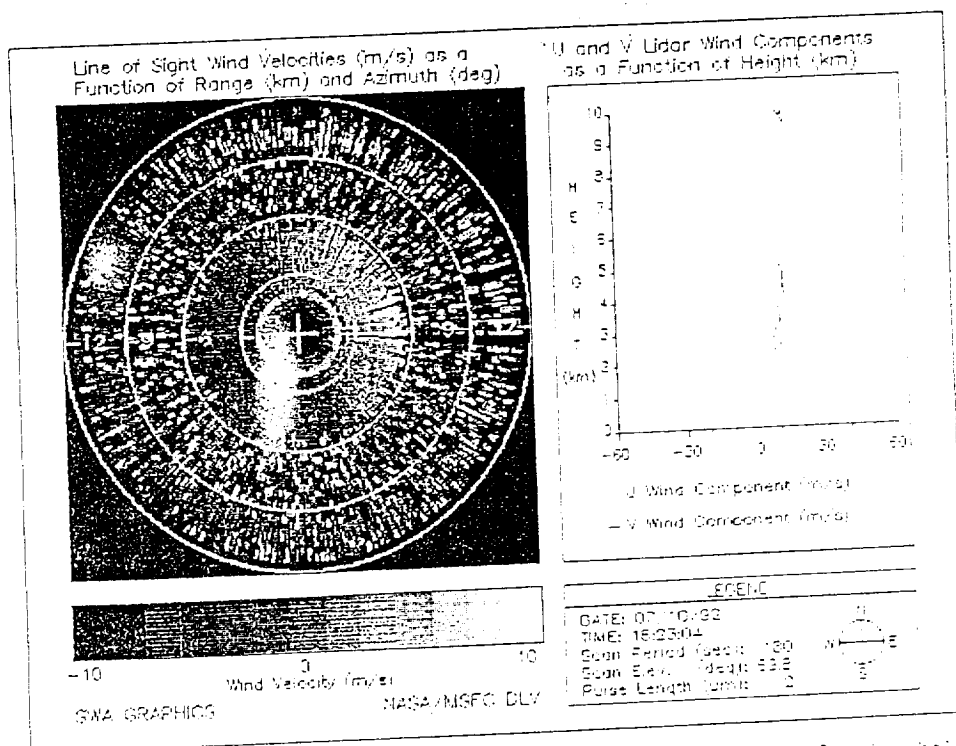 Line of Sight Wind Velocities (m/s) as a
Function of Range (km) and Azimuth (deg)
-12 -9 9 12
-10 0 10
Wind Velocity (m/s)
SWA GRAPHICS
NASA/MSFC DLV
U and V Lidar Wind Components
as a Function of Height (km)
10
9
8
7
6
5
4
3
2
1
0
HEIGHT
(km)
-60 -30 0 30 60
U Wind Component (m/s)
V Wind Component (m/s)
LEGEND
DATE:
TIME: 18:23:04
Scan Period (sec):
Scan Elev. (deg):
Pulse Length (um): 2
N
W E
S